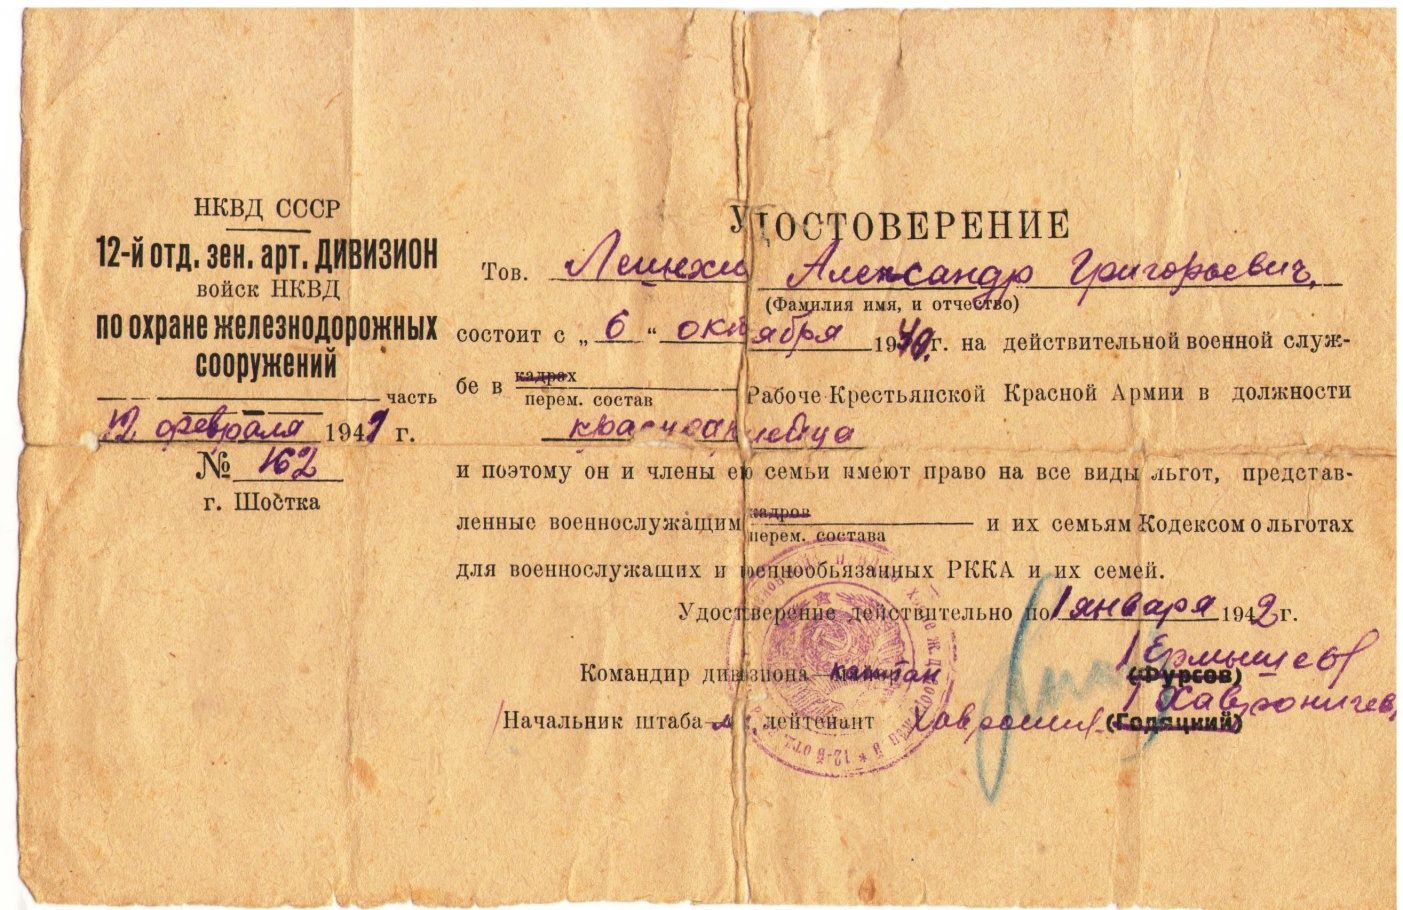 НКВД СССР
12-й отд. зен. арт. ДИВИЗИОН
войск НКВД
по охране железнодорожных
сооружений
часть
12 февраля 1941 г.
№ 162
г. Шостка
УДОСТОВЕРЕНИЕ
Тов. Александр Григорьевич,
(Фамилия имя, и отчество)
состоит с „6“ октября 1940 г. на действительной военной служ-
бе в кадрах Рабоче-Крестьянской Красной Армии в должности
перем. состав
красноармейца
и поэтому он и члены его семьи имеют право на все виды льгот, представ-
ленные военнослужащим кадров и их семьям Кодексом о льготах
перем. состава
для военнослужащих и военнообьязанных РККА и их семей.
Удостверение действительно по 1 января 1942 г.
Командир дивизиона капитан (Фурсов)
Ермышев
Начальник штаба мл. лейтенант (Годяцкий)